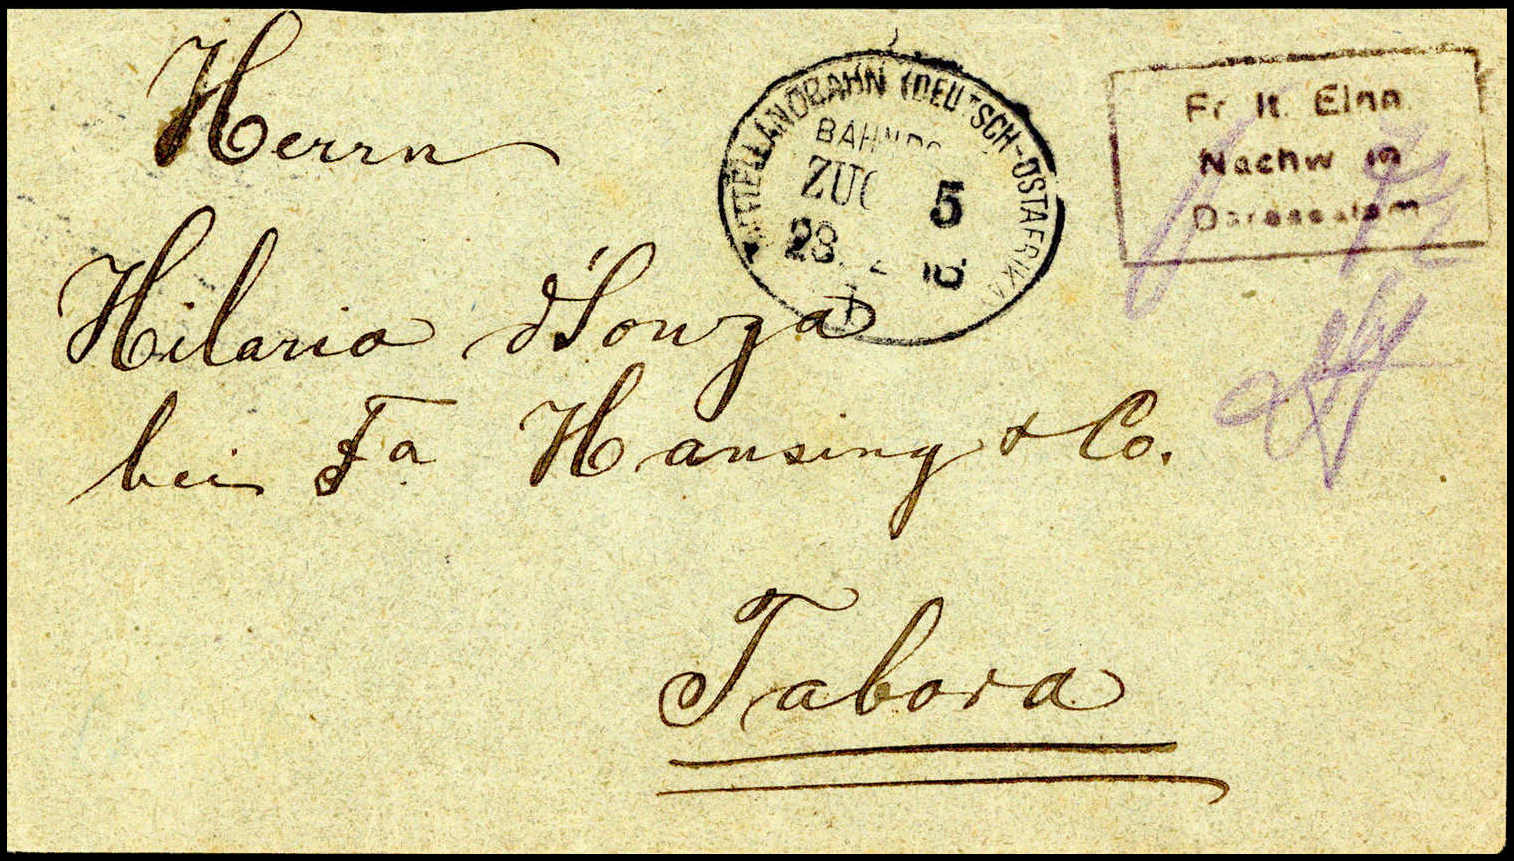 Herrn
Hilario d'Souza
bei Fa. Hansing & Co.
Tabora
MITTELLANDBAHN (DEUTSCH-OSTAFRIKA)
ZUG 5
28.
b
Fr. lt. Einn.
Nachw. in
Daressalam